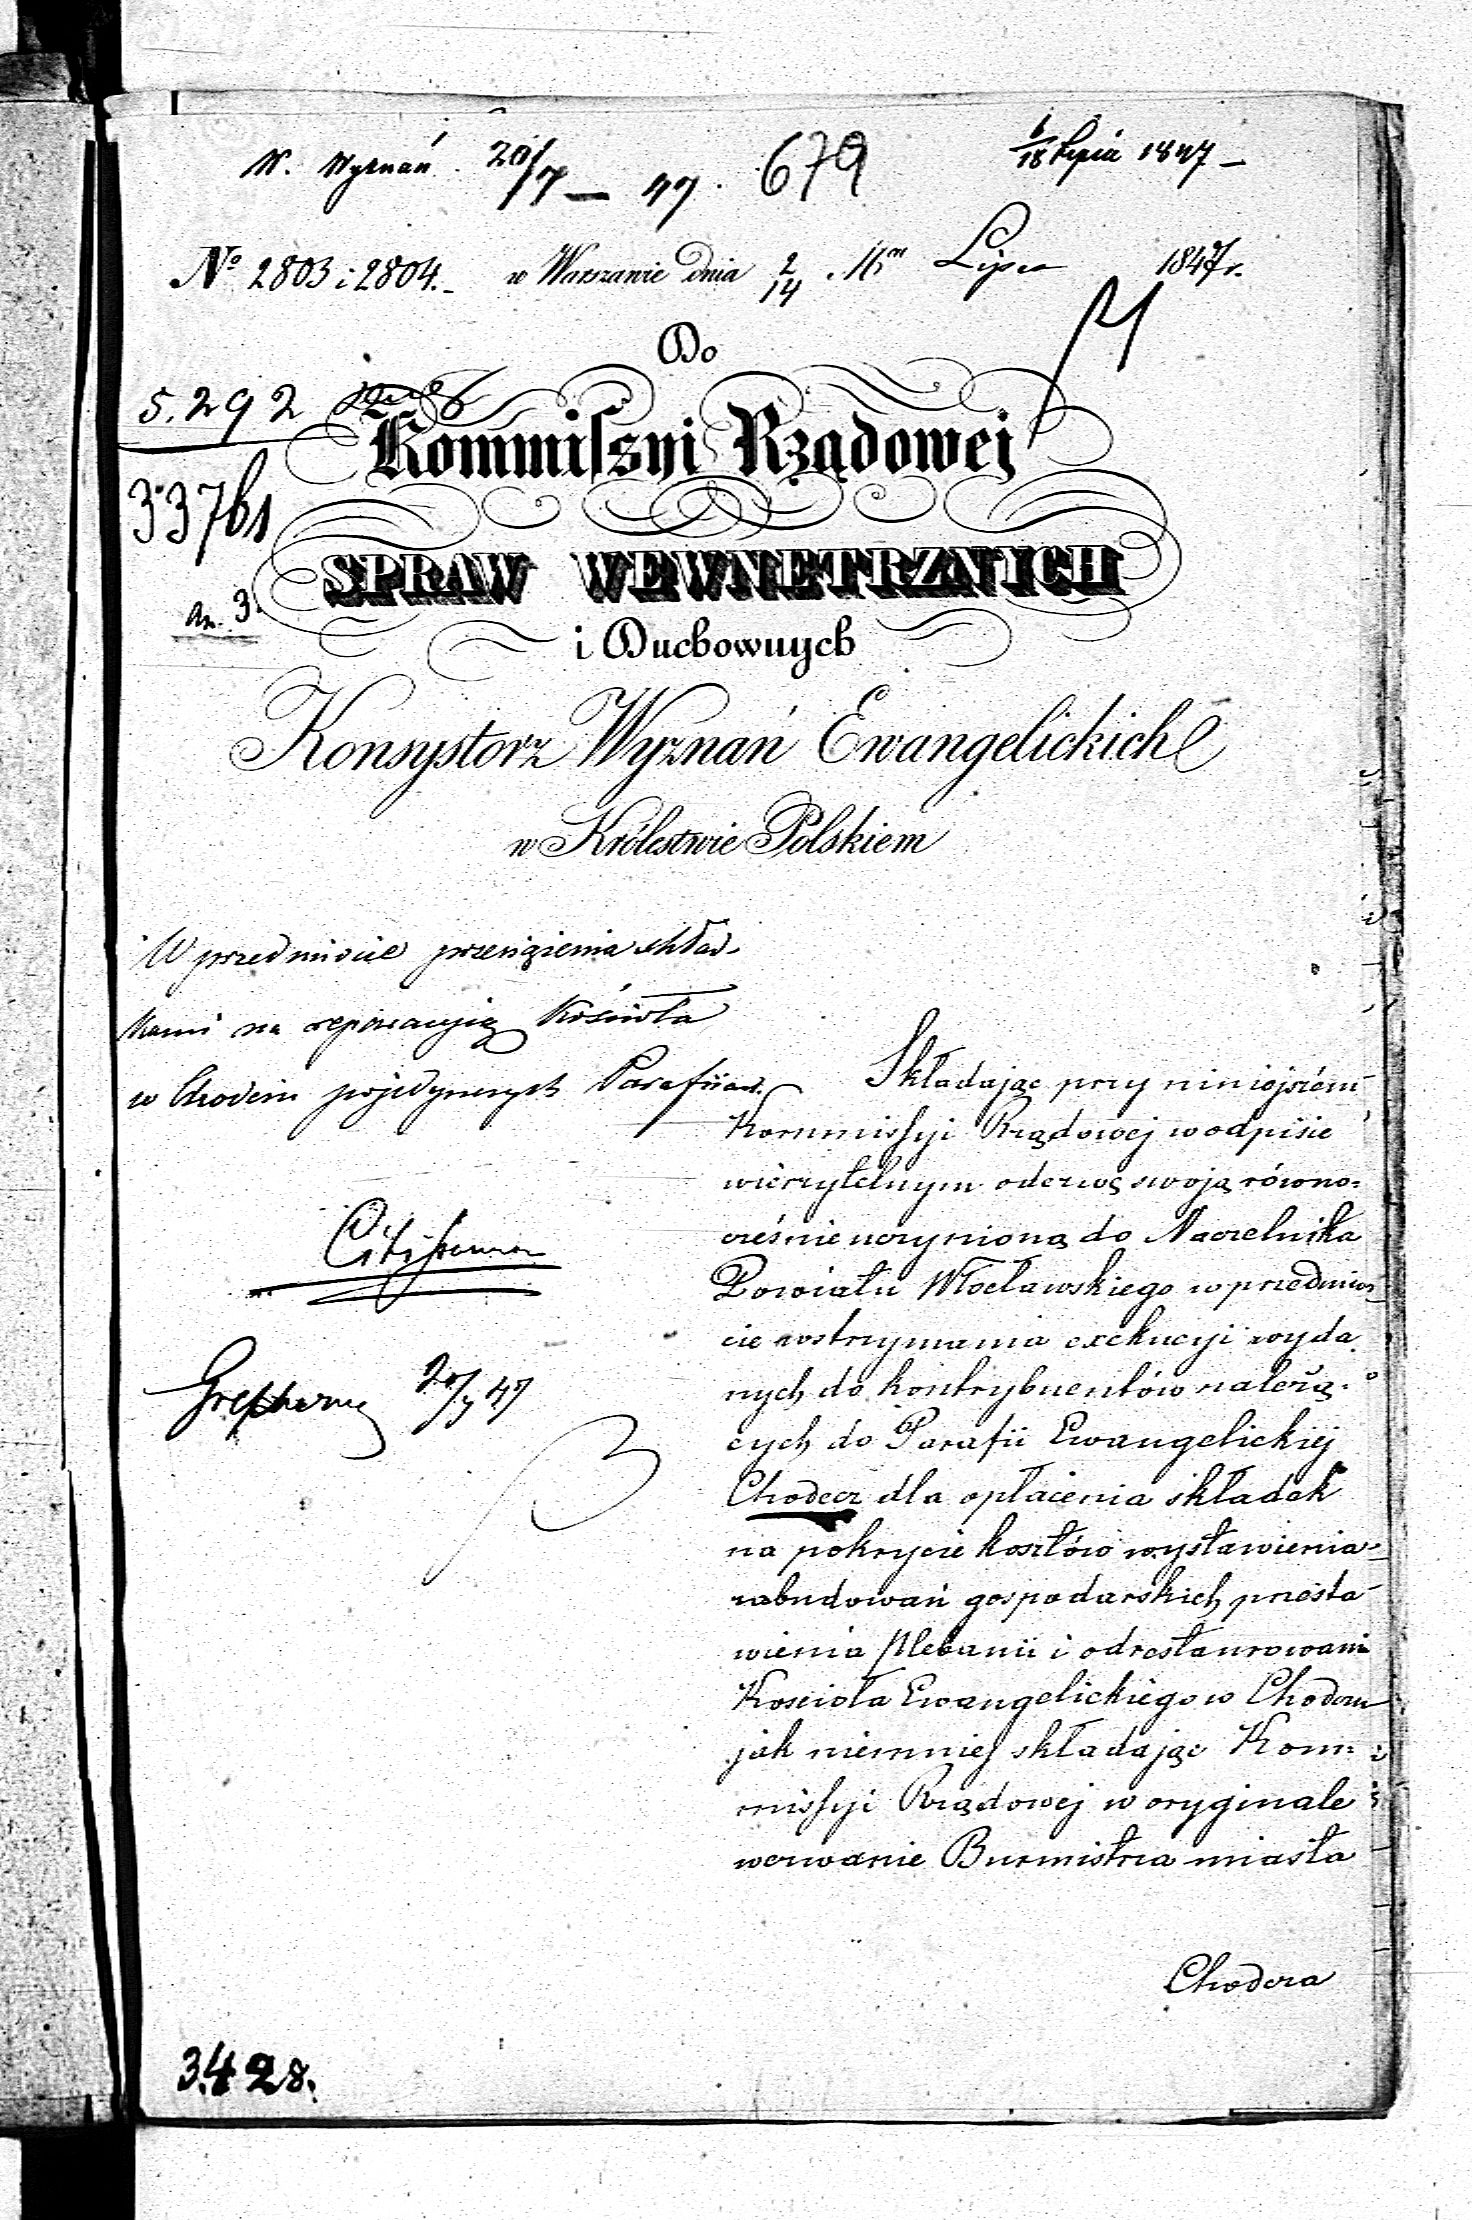 W. Wyznań 20/7 – 47. 679 6/18 Lipca 1847 –
№ 2803 i 2804. w Warszawie dnia 2/14 Mca Lipca 1847 r.
Do
5.292
Kommissyi Rządowej
33761
SPRAW WEWNĘTRZNYCH
an. 3.
i Duchownych
Konsystorz Wyznań Ewangelickich
w Królestwie Polskiem
W przedmiocie przeciążenia skład-
kami na reparacyią Kościoła
w Chodczu pojedynczych Parafiian.
Składając przy niniejszém
Kommissyi Rządowej w odpisie
wierzytelnym odezwę swoją równo-
cześnie uczynioną do Naczelnika
Powiatu Włocławskiego w przedmio-
cie wstrzymania exekucyi wyda-
nych do kontrybuentów należą-
cych do Parafii Ewangelickiej
Chodecz dla opłacenia składek
na pokrycie kosztów wystawienia
zabudowań gospodarskich, przesta-
wienia Plebanii i odrestaurowania
Kościoła Ewangelickiego w Chodczu
jak niemniej składając Kom-
missyi Rządowej w oryginale
wezwanie Burmistrza miasta
Chodcza
20/7 47
3.428.